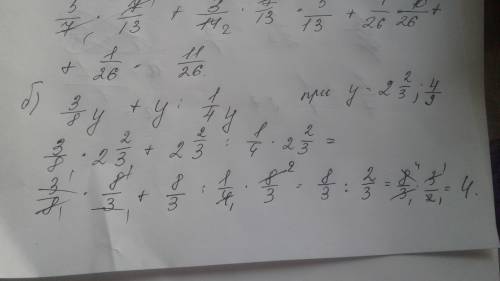 3/7 · 7/13 + 3/14 · 7/13 = 3/13 + 1/26
+ 1/26 = 11/26.
б) 3/8 y + y : 1/4 y при y = 2 2/3; 4/9
3/8 · 2 2/3 + 2 2/3 : 1/4 · 2 2/3 =
3/8 · 8/3 + 8/3 : 1/4 · 8/3 = 8/3 : 2/3 = 8/3 · 3/2 = 4.